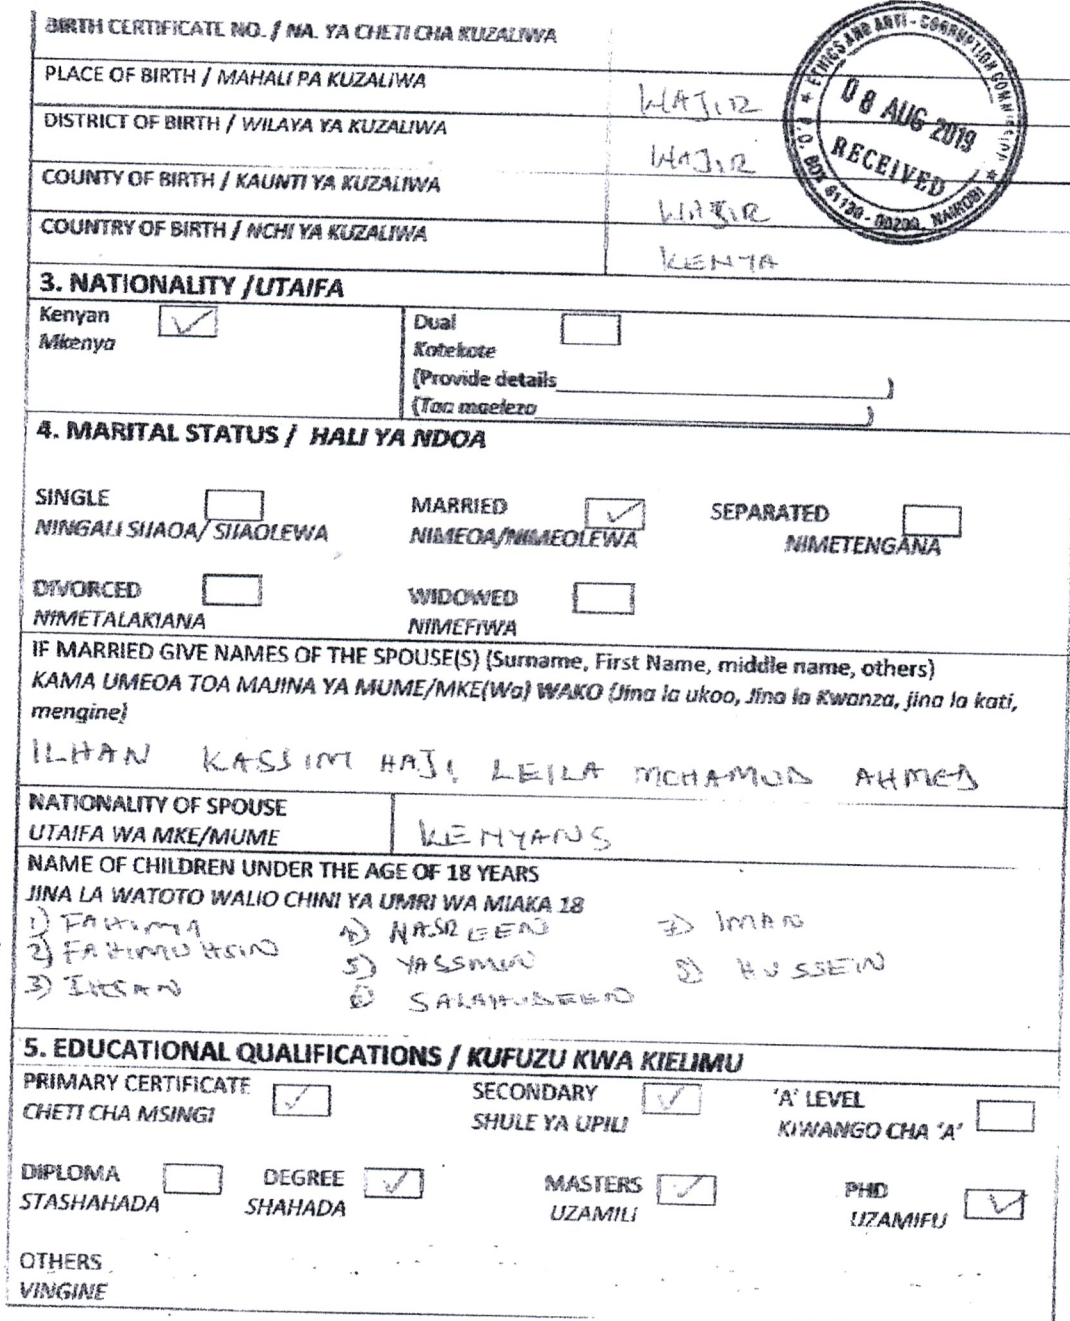 BIRTH CERTIFICATE NO. / NA. YA CHETI CHA KUZALIWA
PLACE OF BIRTH / MAHALI PA KUZALIWA
WAJIR
DISTRICT OF BIRTH / WILAYA YA KUZALIWA
WAJIR
COUNTY OF BIRTH / KAUNTI YA KUZALIWA
WAJIR
COUNTRY OF BIRTH / NCHI YA KUZALIWA
KENYA
★ ETHICS AND ANTI-CORRUPTION COMMISSION ★
08 AUG 2019
RECEIVED
P.O. BOX 61130 - 00200, NAIROBI
3. NATIONALITY / UTAIFA
Kenyan ✓
Mkenya
Dual
Kotekote
(Provide details____________________)
(Toa maelezo____________________)
4. MARITAL STATUS / HALI YA NDOA
SINGLE MARRIED ✓ SEPARATED
NINGALI SIJAOA/ SIJAOLEWA NIMEOA/NIMEOLEWA NIMETENGANA
DIVORCED WIDOWED
NIMETALAKIANA NIMEFIWA
IF MARRIED GIVE NAMES OF THE SPOUSE(S) (Surname, First Name, middle name, others)
KAMA UMEOA TOA MAJINA YA MUME/MKE(Wa) WAKO (Jina la ukoo, Jina la Kwanza, jina la kati,
mengine)
ILHAN KASSIM HAJI, LEILA MOHAMUD AHMED
NATIONALITY OF SPOUSE
UTAIFA WA MKE/MUME
KENYANS
NAME OF CHILDREN UNDER THE AGE OF 18 YEARS
JINA LA WATOTO WALIO CHINI YA UMRI WA MIAKA 18
1) FAHIMA 4) NASREEN 7) IMAN
2) FAHIMUHSIN 5) YASSMIN 8) HUSSEIN
3) IHSAN 6) SALAHUDEEN
5. EDUCATIONAL QUALIFICATIONS / KUFUZU KWA KIELIMU
PRIMARY CERTIFICATE ✓ SECONDARY ✓ 'A' LEVEL
CHETI CHA MSINGI SHULE YA UPILI KIWANGO CHA 'A'
DIPLOMA DEGREE ✓ MASTERS ✓ PHD ✓
STASHAHADA SHAHADA UZAMILI UZAMIFU
OTHERS
VINGINE